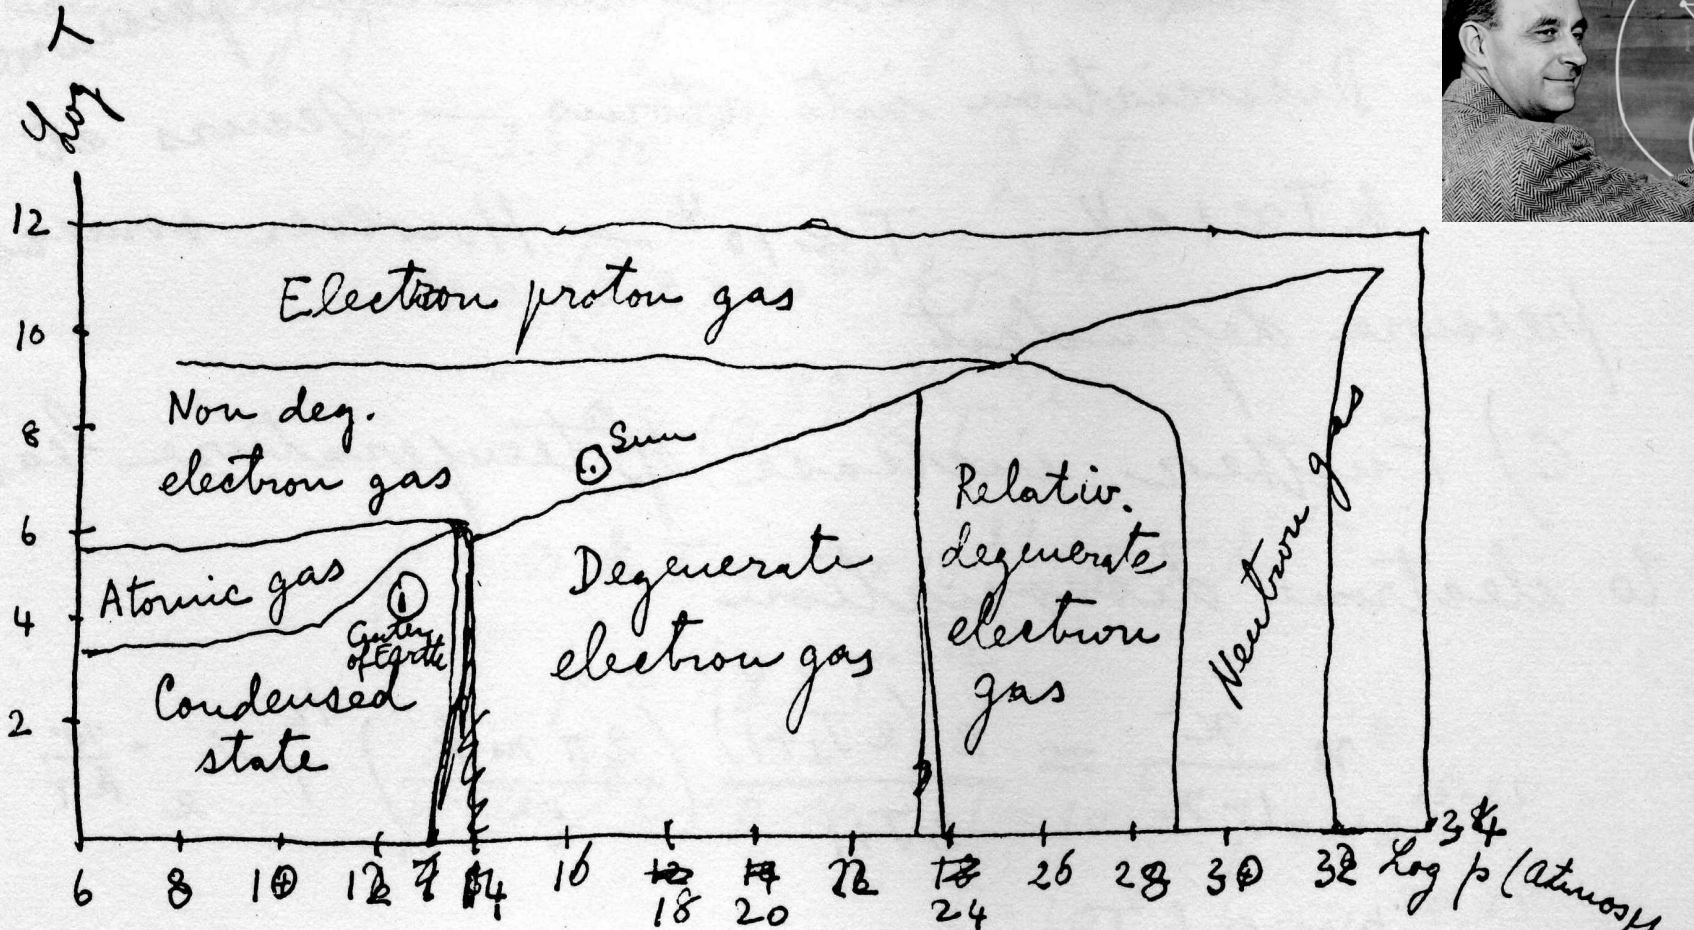 Log T
12
Electron proton gas
10
Non deg.
8
electron gas
Sun
6
Atomic gas
4
Center
of Earth
Condensed
state
2
Degenerate
electron gas
Relativ.
degenerate
electron
gas
Neutron gas
6 8 10 12 14 16 18 20 22 24 26 28 30 32 34
Log p (Atmosp